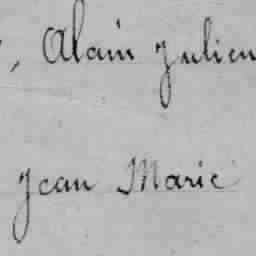 , Alain Julien
Jean Marie